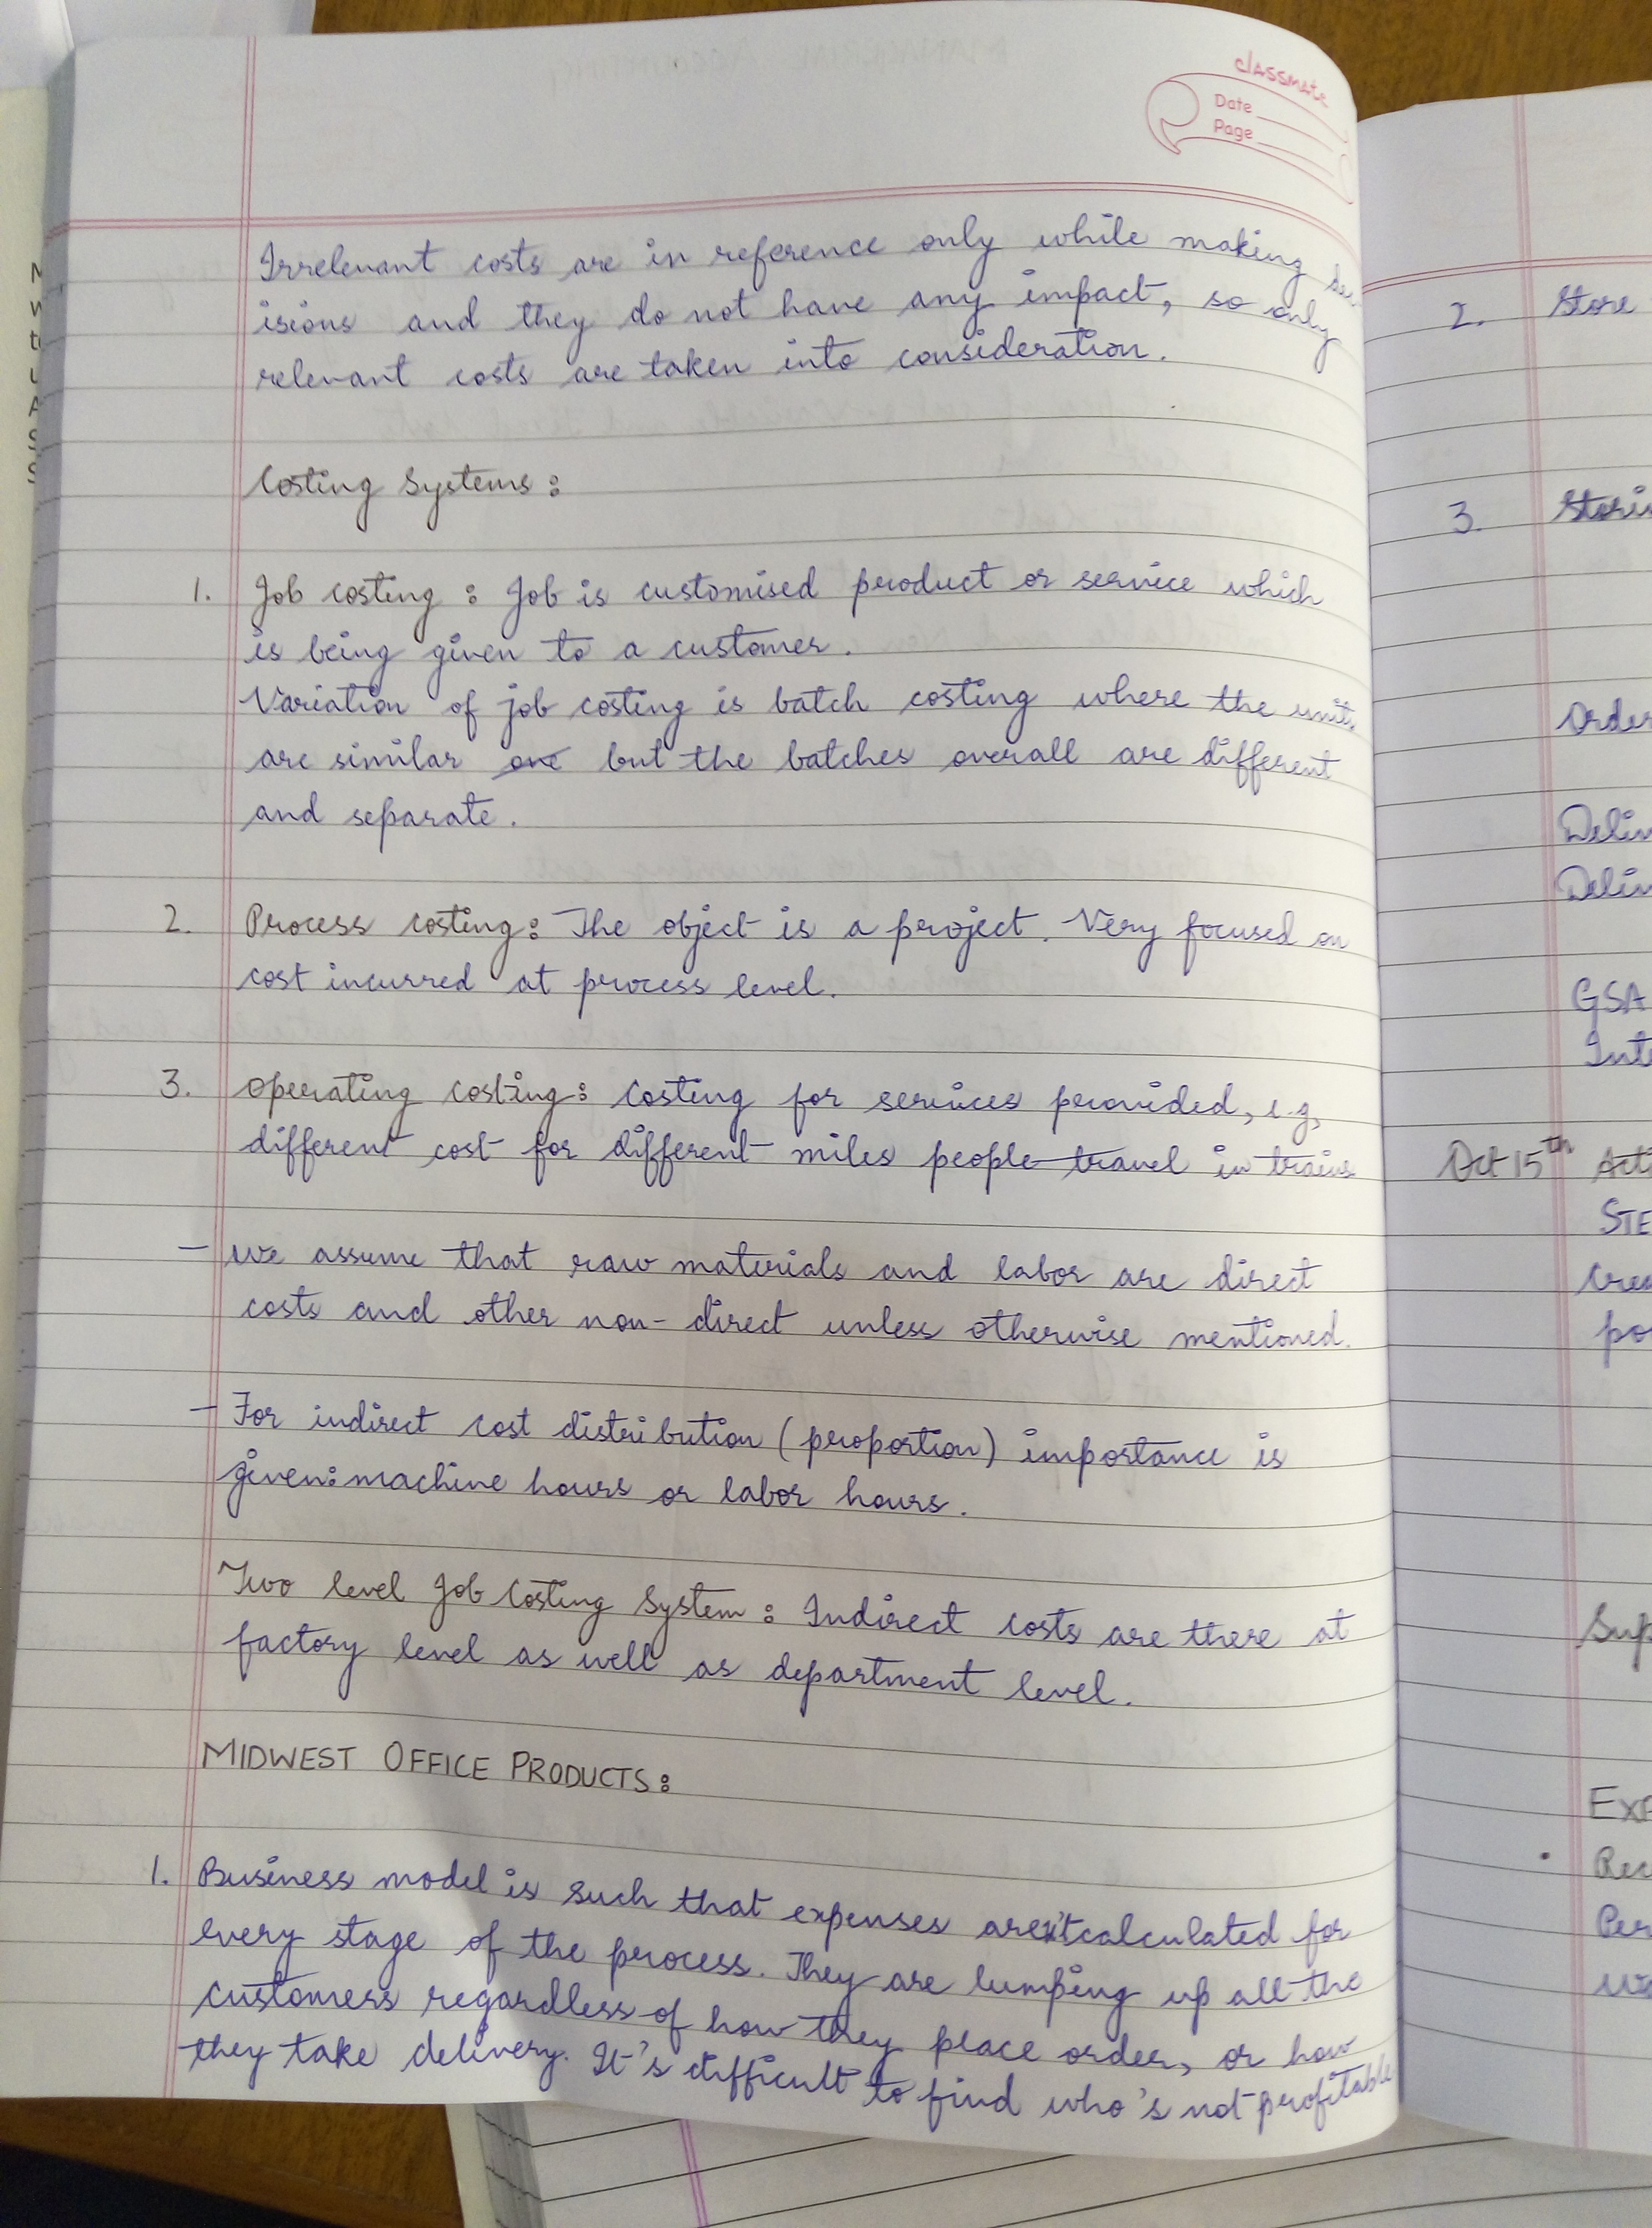 classmate
Date
Page
Irrelevant costs are in reference only while making dec
isions and they do not have any impact, so only
relevant costs are taken into consideration.
Costing Systems:
1. Job costing: Job is customised product or service which
is being given to a customer.
Variation of job costing is batch costing where the units
are similar but the batches overall are different
and separate.
2. Process costing: The object is a project. Very focused on
cost incurred at process level.
3. Operating costing: Costing for services provided, e.g,
different cost for different miles people travel in trains
- We assume that raw materials and labor are direct
costs and other non-direct unless otherwise mentioned.
- For indirect cost distribution (proportion) importance is
given: machine hours or labor hours.
Two level Job Costing System: Indirect costs are there at
factory level as well as department level.
MIDWEST OFFICE PRODUCTS:
1. Business model is such that expenses aren't calculated for
every stage of the process. They are lumping up all the
customers regardless of how they place order, or how
they take delivery. It's difficult to find who's not profitable
2. Store
3.
GSA
Oct 15th